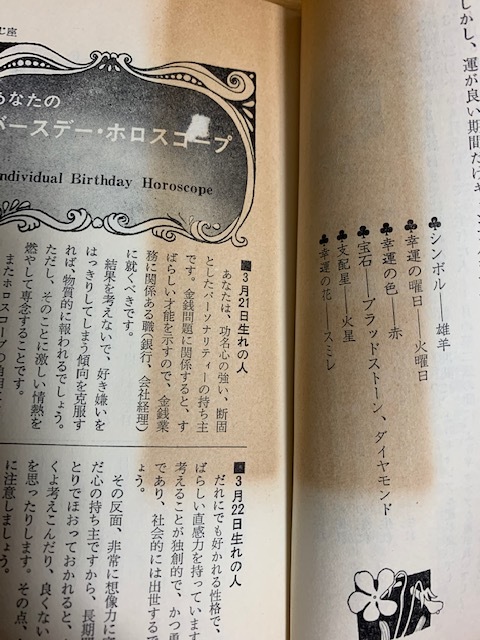 しかし、運が良い期間だけ
♣シンボル――雄羊
♣幸運の曜日――火曜日
♣幸運の色　赤
♣宝石――ブラッドストーン、ダイヤモンド
♣支配星――火星
♣幸運の花――スミレ
じ座
あなたの
バースデー・ホロスコープ
ndividual Birthday Horoscope
■3月21日生れの人
あなたは、功名心の強い、断固
としたパーソナリティーの持ち主
です。金銭問題に関係すると、す
ばらしい才能を示すので、金銭業
務に関係ある職(銀行、会社経理)
に就くべきです。
結果を考えないで、好き嫌いを
はっきりしてしまう傾向を克服す
れば、物質的に報われるでしょう。
ただし、そのことに激しい情熱を
燃やして専念することです。
またホロスコープの
■3月22日生れの人
だれにでも好かれる性格で、
ばらしい直感力を持っています
考えることが独創的で、かつ勇
であり、社会的には出世するで
ょう。
その反面、非常に想像力に
だ心の持ち主ですから、長期間
とりでほおっておかれると、
くよ考えこんだり、良くない
を思ったりします。その点、
に注意しましょう。